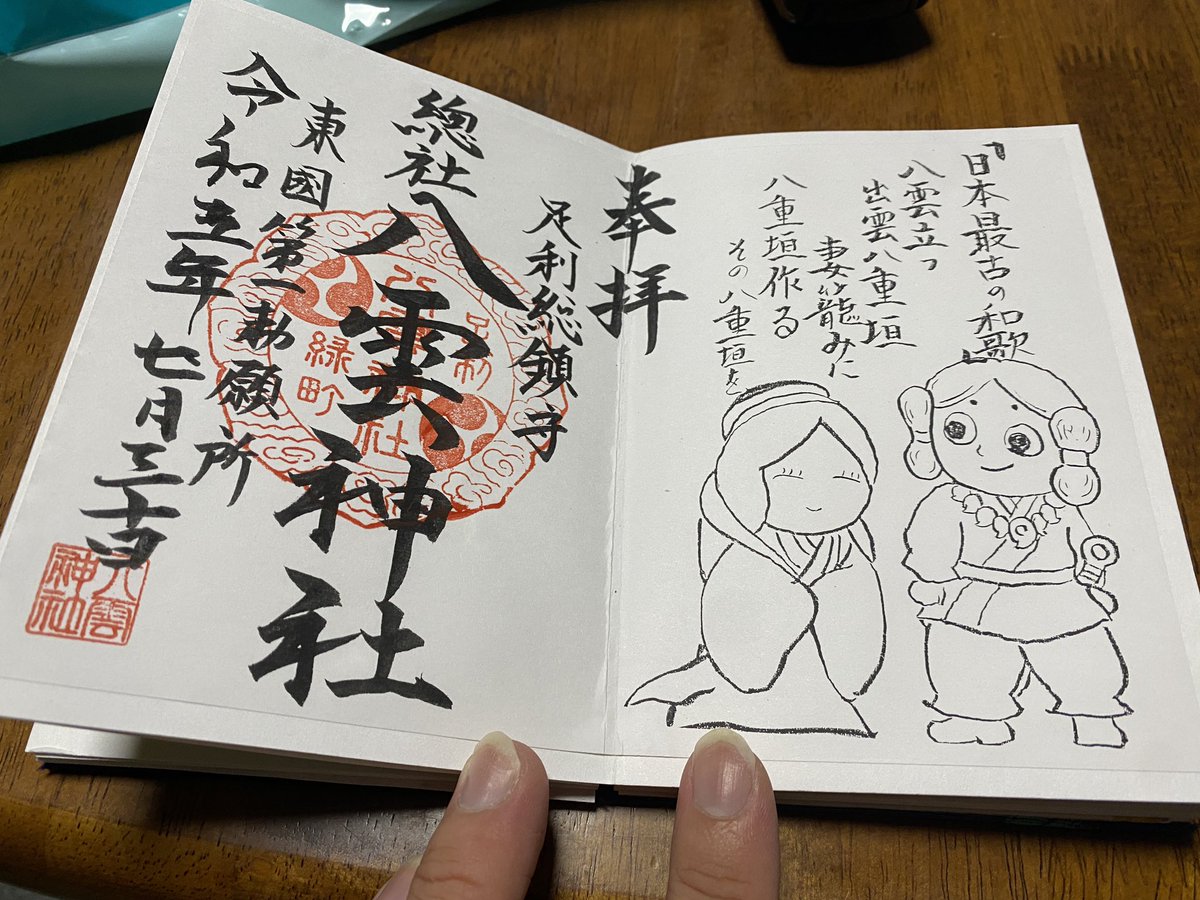 『日本最古の和歌』
八雲立つ
出雲八重垣
妻籠みに
八重垣作る
その八重垣を
奉拝
足利総鎮守
總社八雲神社
東國第一勅願所
令和五年七月三十日
足利
八雲神社
緑町
八雲
神社